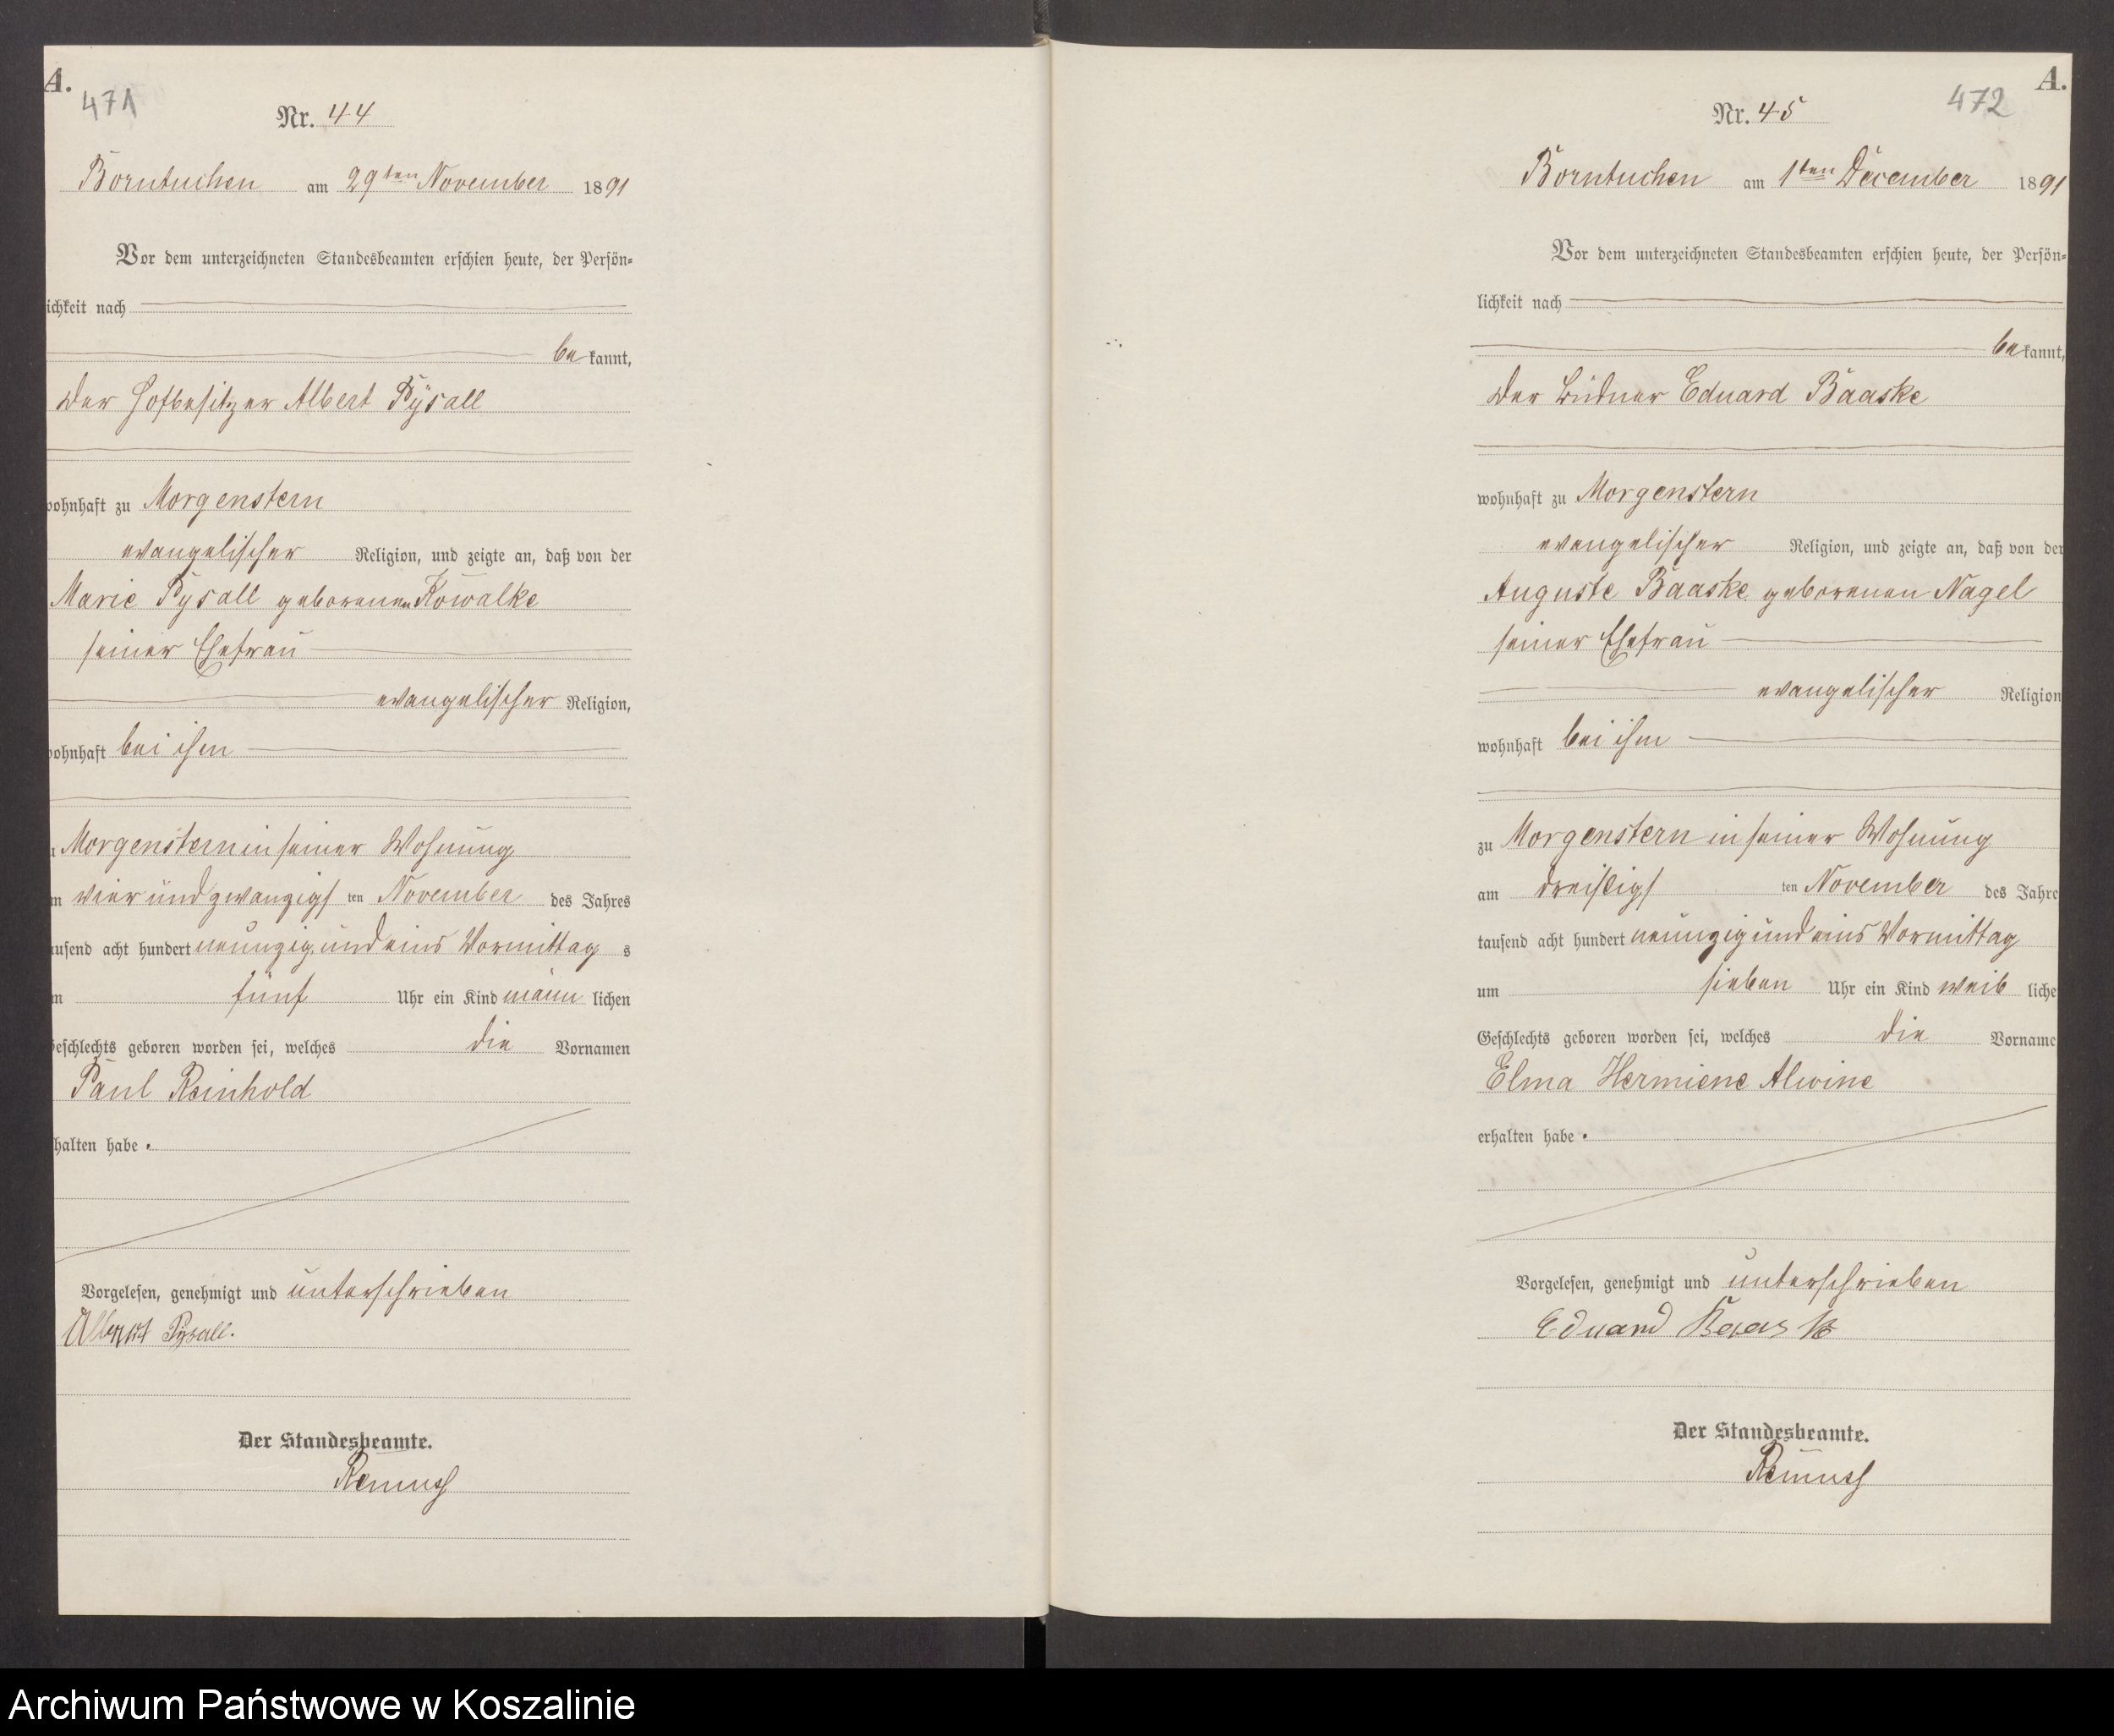 A.
471
Nr. 44
Borntuchen am 29ten November 1891
Vor dem unterzeichneten Standesbeamten erschien heute, der Persön-
ichkeit nach
be kannt,
der Hofbesitzer Albert Pÿsall
wohnhaft zu Morgenstern
evangelischer Religion, und zeigte an, daß von der
Marie Pysall geborenen Kowalke
seiner Ehefrau
evangelischer Religion,
wohnhaft bei ihm
Morgenstern in seiner Wohnung
m vier und zwanzigs ten November des Jahres
ausend acht hundert neunzig und eins Vormittag s
m fünf Uhr ein Kind männ lichen
Geschlechts geboren worden sei, welches die Vornamen
Paul Reinhold
halten habe.
Vorgelesen, genehmigt und unterschrieben
Albert Pysall.
Der Standesbeamte.
A.
472
Nr. 45
Borntuchen am 1ten December 1891
Vor dem unterzeichneten Standesbeamten erschien heute, der Persön-
lichkeit nach
be kannt,
der Büdner Eduard Baaske
wohnhaft zu Morgenstern
evangelischer Religion, und zeigte an, daß von der
Auguste Baaske geborenen Nagel
seiner Ehefrau
evangelischer Religion
wohnhaft bei ihm
zu Morgenstern in seiner Wohnung
am dreißigs ten November des Jahre
tausend acht hundert neunzig und eins Vormittag
um sieben Uhr ein Kind weib liche
Geschlechts geboren worden sei, welches die Vorname
Elma Hermiene Alwine
erhalten habe.
Vorgelesen, genehmigt und unterschrieben
Eduard Baaske
Der Standesbeamte.
Archiwum Państwowe w Koszalinie